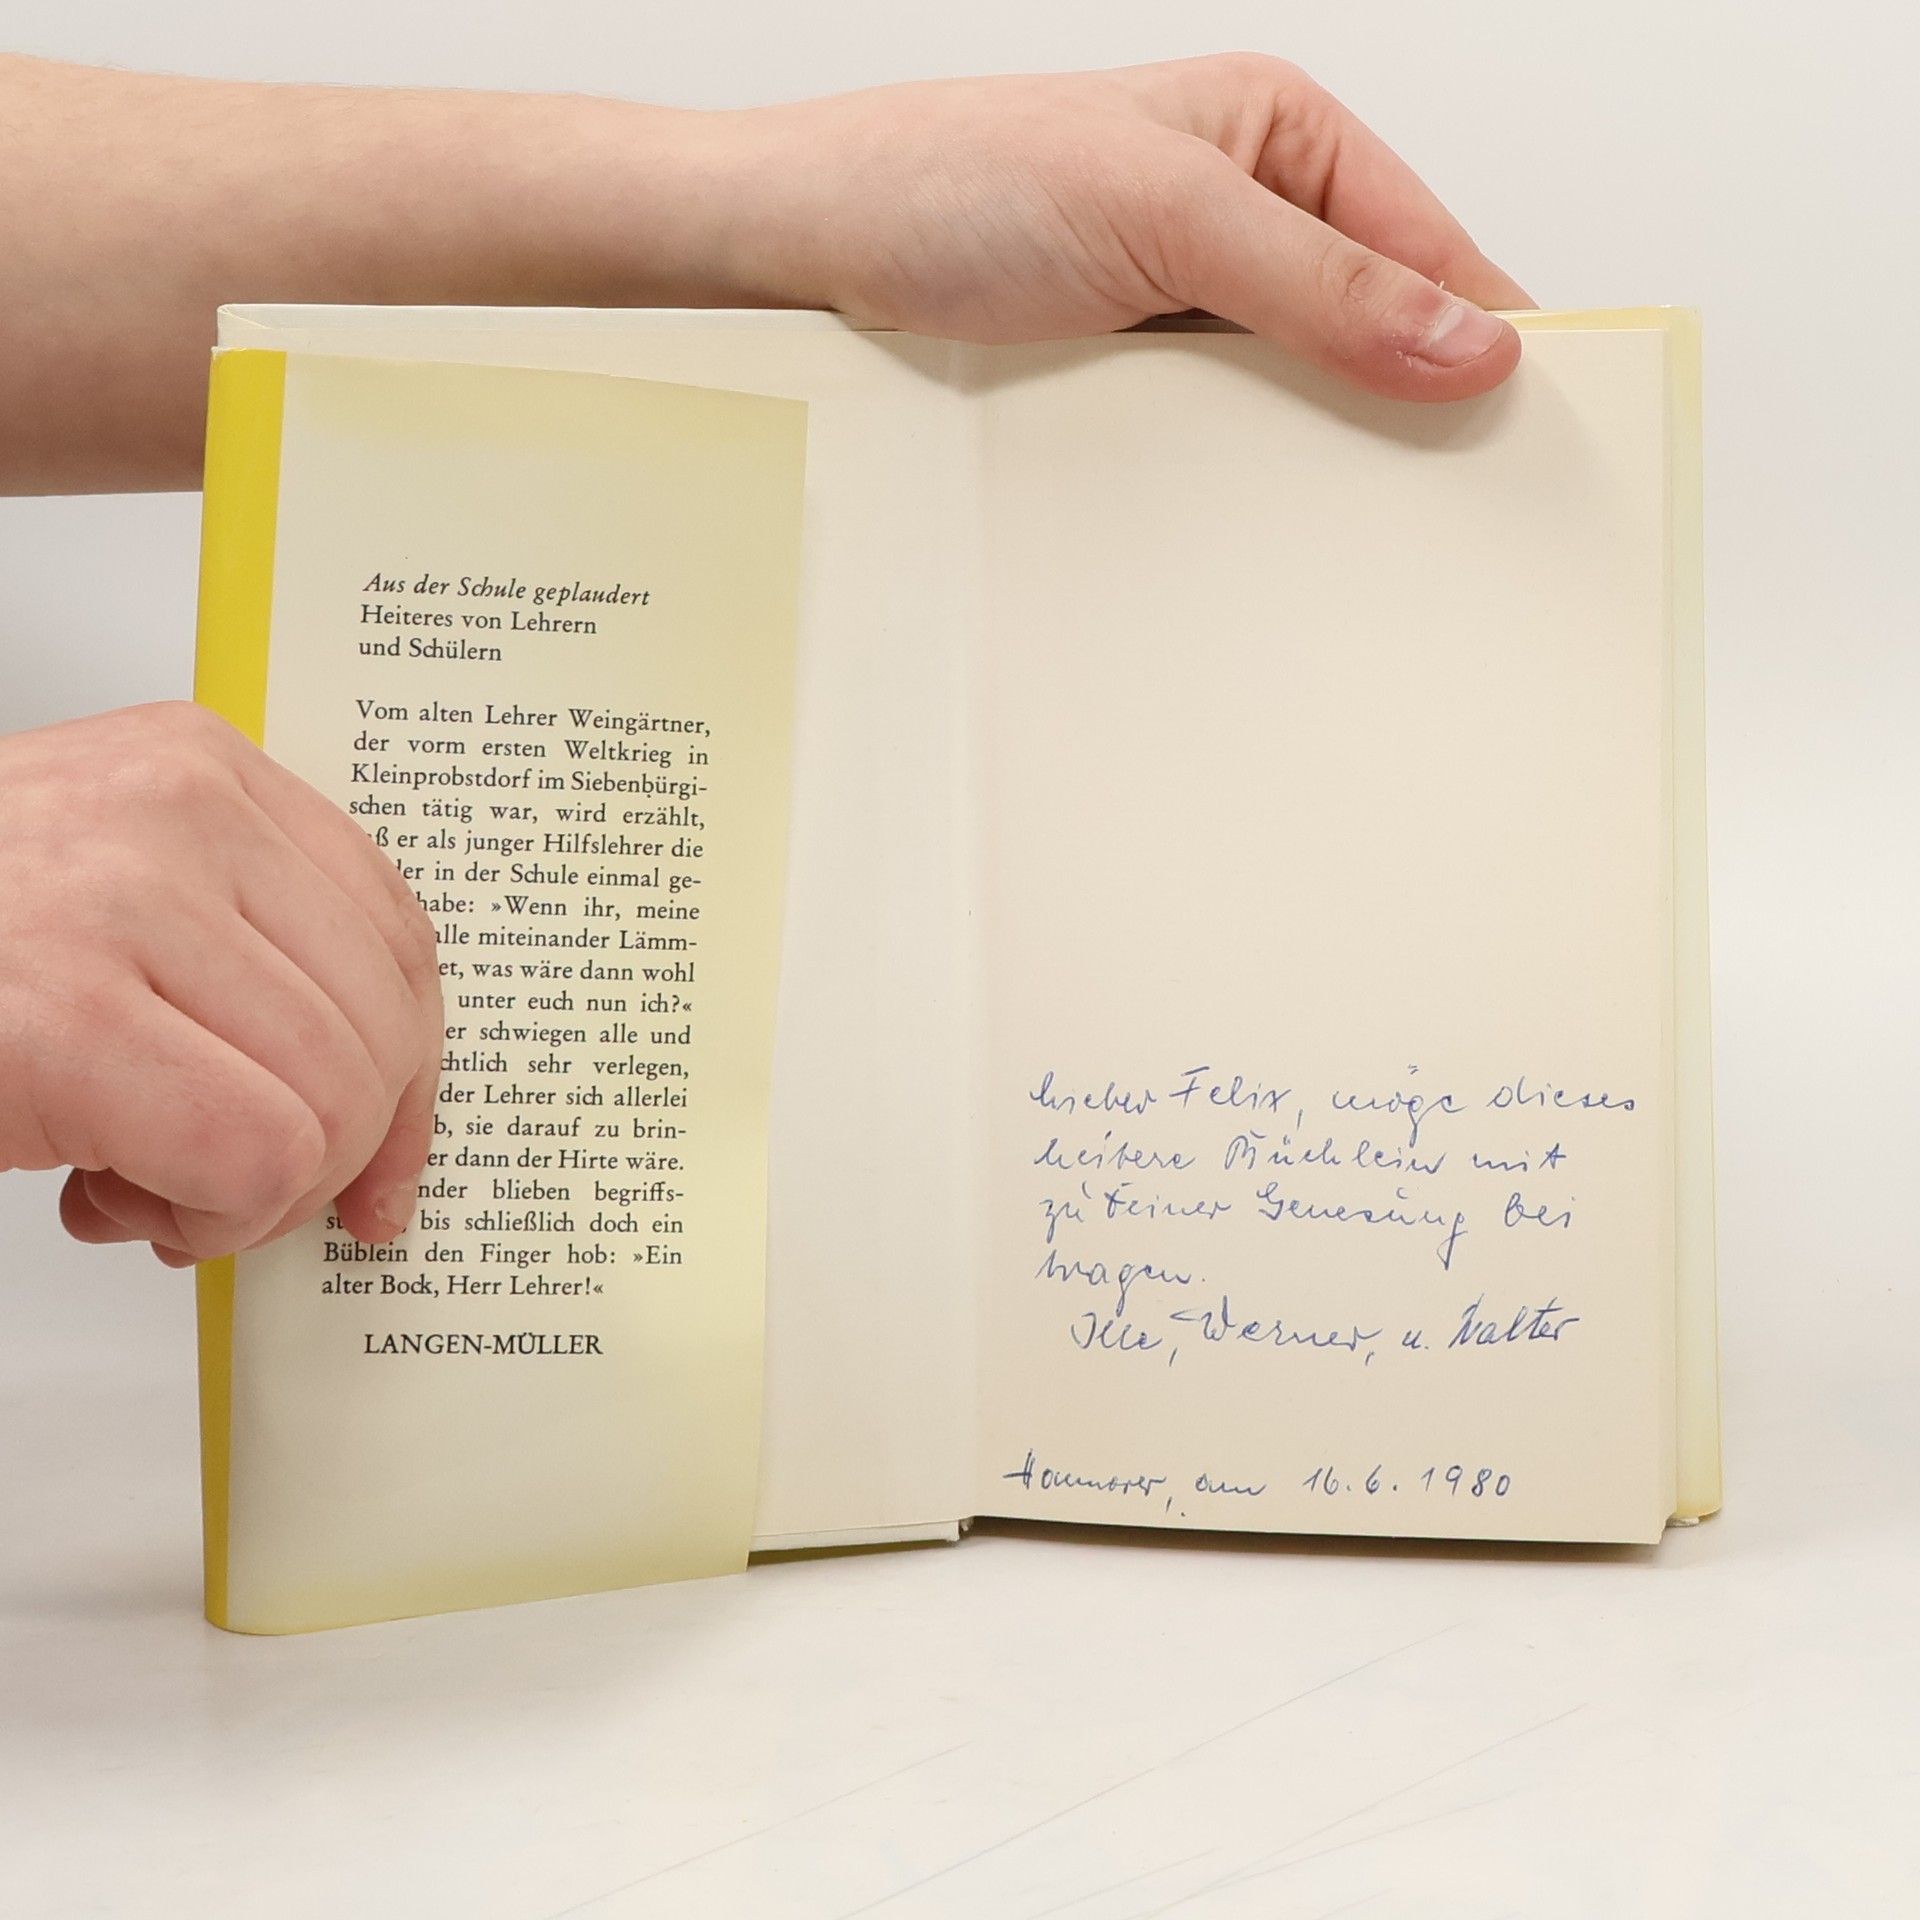 Aus der Schule geplaudert
Heiteres von Lehrern
und Schülern
Vom alten Lehrer Weingärtner,
der vorm ersten Weltkrieg in
Kleinprobstdorf im Siebenbürgi-
schen tätig war, wird erzählt,
ß er als junger Hilfslehrer die
der in der Schule einmal ge-
habe: »Wenn ihr, meine
alle miteinander Lämm-
et, was wäre dann wohl
unter euch nun ich?«
er schwiegen alle und
chtlich sehr verlegen,
der Lehrer sich allerlei
b, sie darauf zu brin-
er dann der Hirte wäre.
nder blieben begriffs-
bis schließlich doch ein
Büblein den Finger hob: »Ein
alter Bock, Herr Lehrer!«
LANGEN-MÜLLER
Lieber Felix, möge dieses
heitere Büchlein mit
zu Deiner Genesung bei
tragen.
Ille, Werner, u. Walter
Hannover, am 16.6.1980